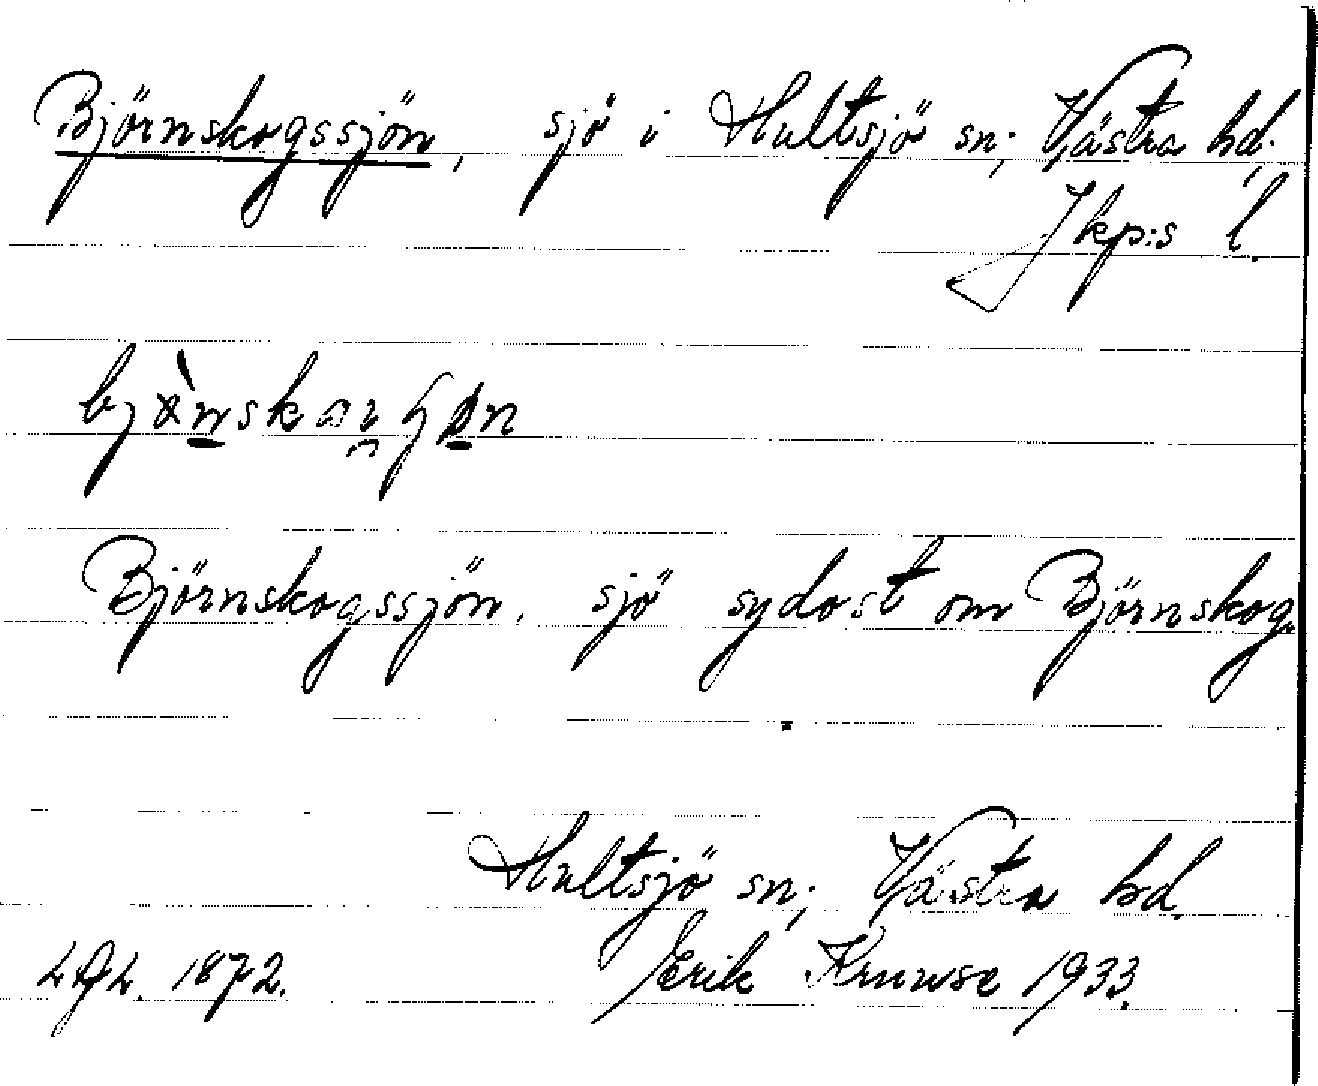 Björnskogssjön, sjö i Hultsjö sn; Västra hd.
Jkp:s l.
Björnskogssjön. sjö sydost om Björnskog.
Hultsjö sn; Västra hd.
1872. Erik Kruuse 1933.